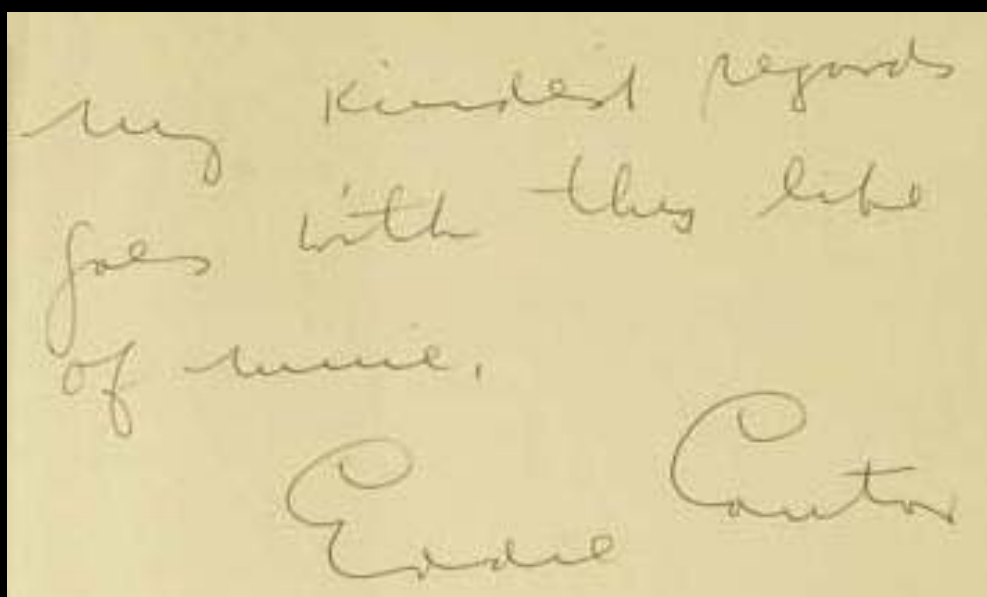 My kindest regards
goes with this life
of mine.
Eddie Cantor